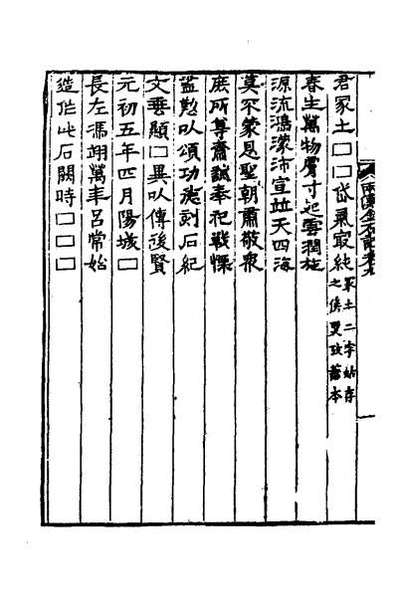 兩漢金石記卷九
君冢土□□岱氣冣純冢土二字姑存
之俟更攷舊本
春生萬物膚寸起雲潤施
源流鴻濛沛宣竝天四海
莫不蒙恩聖朝肅敬衆
庶所尊齋誠奉祀戰慄
盡懃以頌功德刻石紀
文垂顯□異以傳後賢
元初五年四月陽城□
長左馮翊萬年呂常始
造作此石闕時□□□